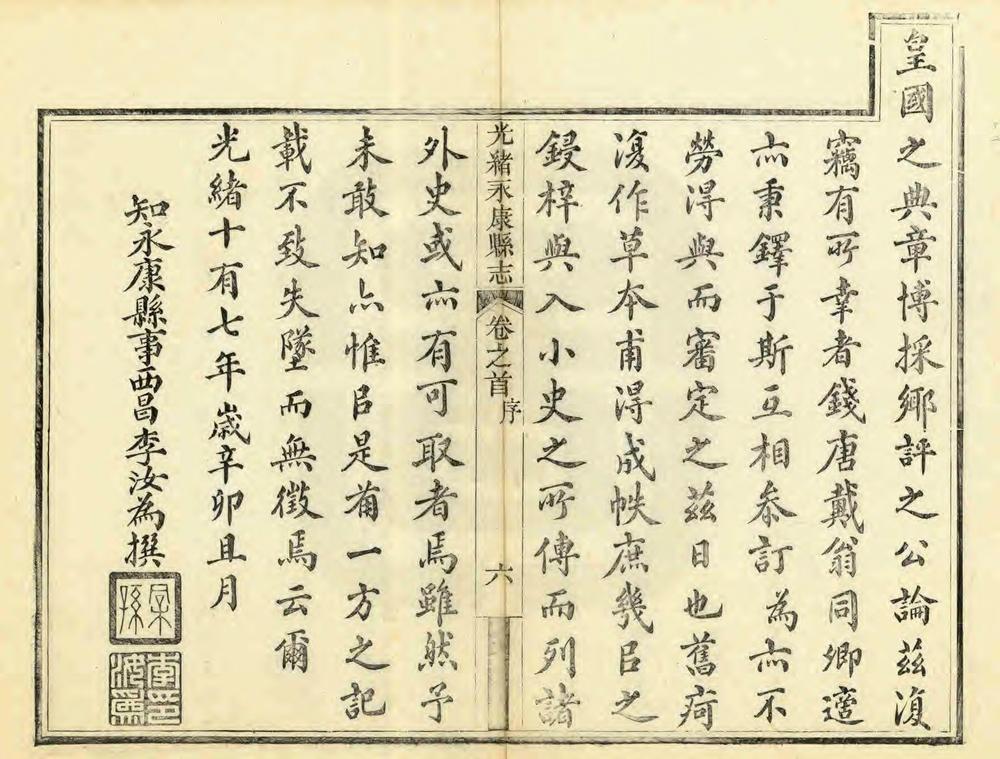 皇國之典章博採鄉評之公論茲復
竊有所幸者錢唐戴翁同卿適
亦秉鐸于斯互相叅訂為亦不
勞得與而審定之茲日也舊疴
復作草本甫得成帙庶幾㠯之
鋟梓與入小史之所傳而列諸
光緒永康縣志
卷之首
序
六
外史或亦有可取者焉雖然予
未敢知亦惟㠯是葡一方之記
載不致失墜而無徵焉云爾
光緒十有七年歲辛卯且月
知永康縣事西昌李汝為撰
李印汝為